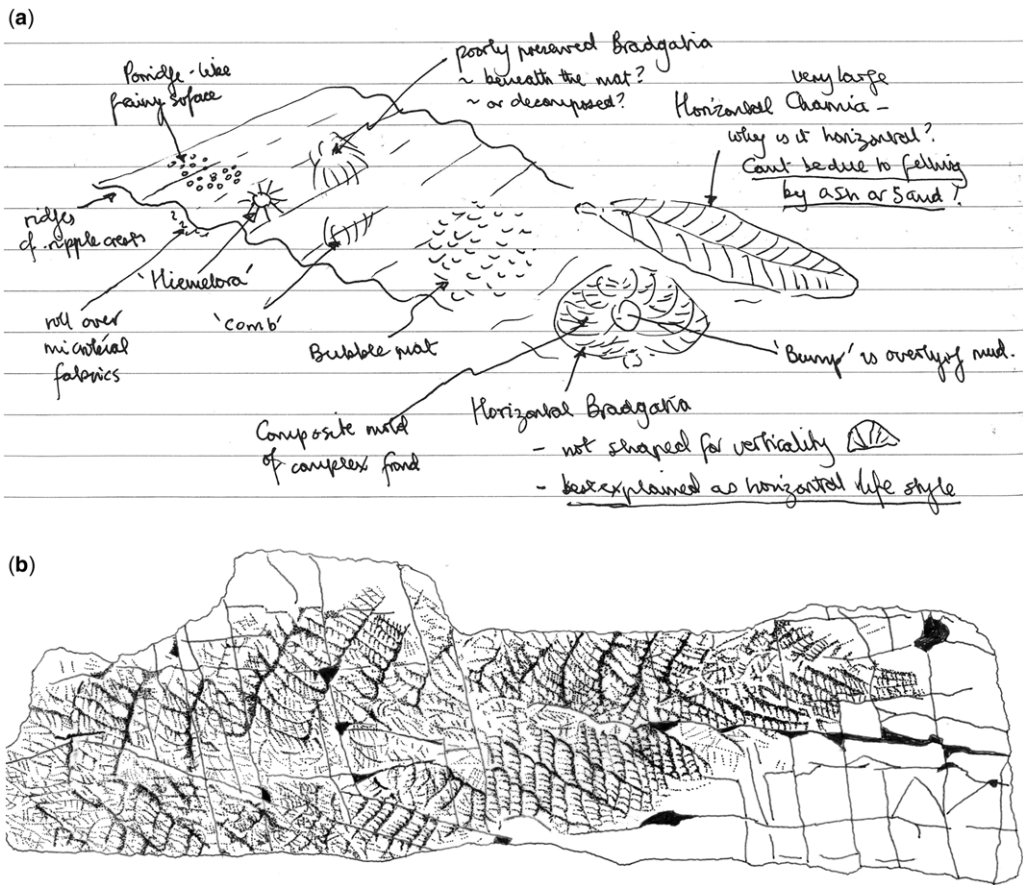 (a)
poorly preserved Bradgatia
~ beneath the mat?
~ or decomposed?
Porridge-like
grainy surface
very large
Horizontal Charnia –
why is it horizontal?
Can't be due to felling
by ash or sand?
ridges
of ripple crests
'Hiemelora'
'comb'
roll over
microbial
fabrics
Bubble mat
'Bump' is overlying mud.
Composite mold
of complex frond
Horizontal Bradgatia
- not shaped for verticality
- best explained as horizontal life style
(b)